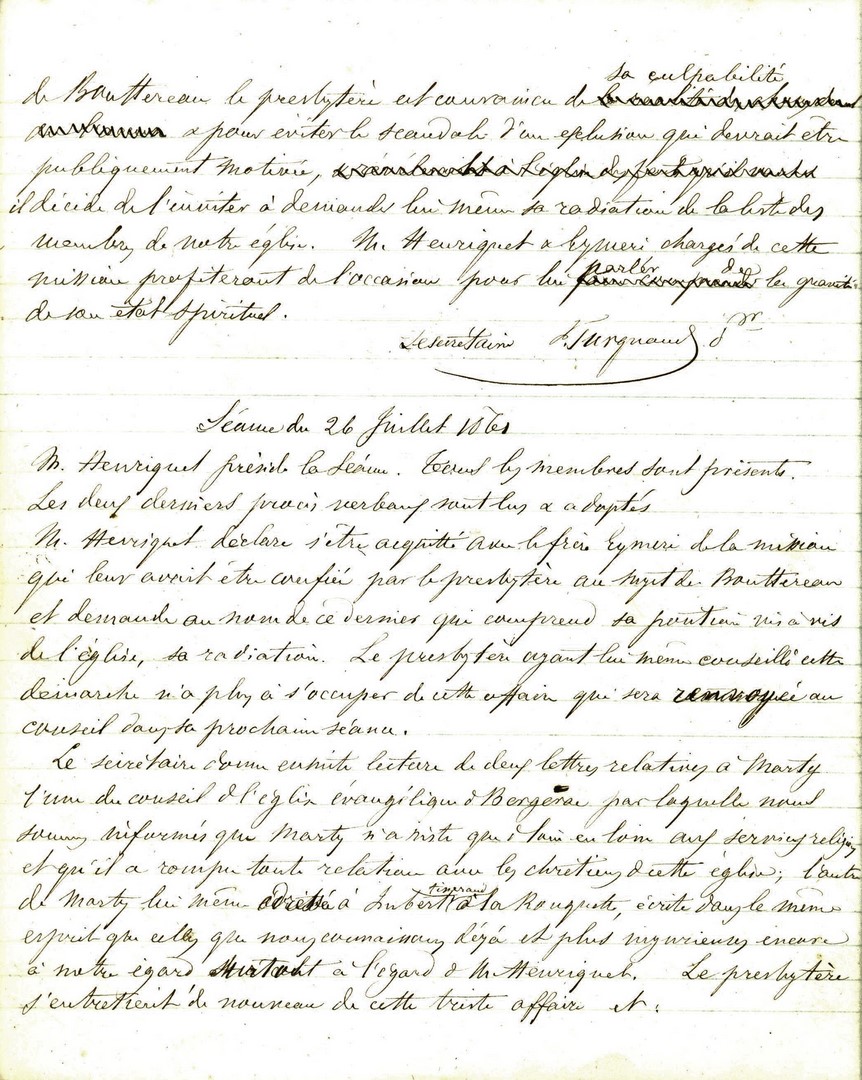 sa culpabilité
de Bouttereau le presbytère est convaincu de
& pour éviter le scandale d'un exclusion qui devrait être
publiquement motivée,
il décide de l'inviter à demander lui même sa radiation de la liste des
membres de notre église. M. Henriquet & Eymeri chargés de cette
parler de
mission profiteront de l'occasion pour lui la gravité
de son état spirituel.
Le secrétaire J. Turgnaud d. m.
Séance du 26 Juillet 1861
M. Henriquet préside la séance. Tous les membres sont présents.
Les deux derniers procès verbaux sont lus & adoptés
M. Henriquet déclare s'être acquitté avec le frère Eymeri de la mission
qui leur avait être confiée par le presbytère au sujet de Bouttereau
et demande au nom de ce dernier qui comprend sa position vis à vis
de l'église, sa radiation. Le presbytère ayant lui même conseillé cette
démarche n'a plus à s'occuper de cette affaire qui sera renvoyée au
conseil dans sa prochaine séance.
Le secrétaire donne ensuite lecture de deux lettres relatives à Marty
l'une du conseil d l'église évangélique d Bergerac par laquelle nous
sommes informés que Marty n'assiste que d loin en loin aux services religieux
et qu'il a rompu toute relation avec les chrétiens d cette église; l'autre
timeraud
de Marty lui même adressé à Imbert à la Rouquette, écrite dans le même
esprit que celles que nous connaissons déjà et plus injurieuse encore
à notre égard surtout à l'égard d M. Henriquet. Le presbytère
s'entretient de nouveau de cette triste affaire et :